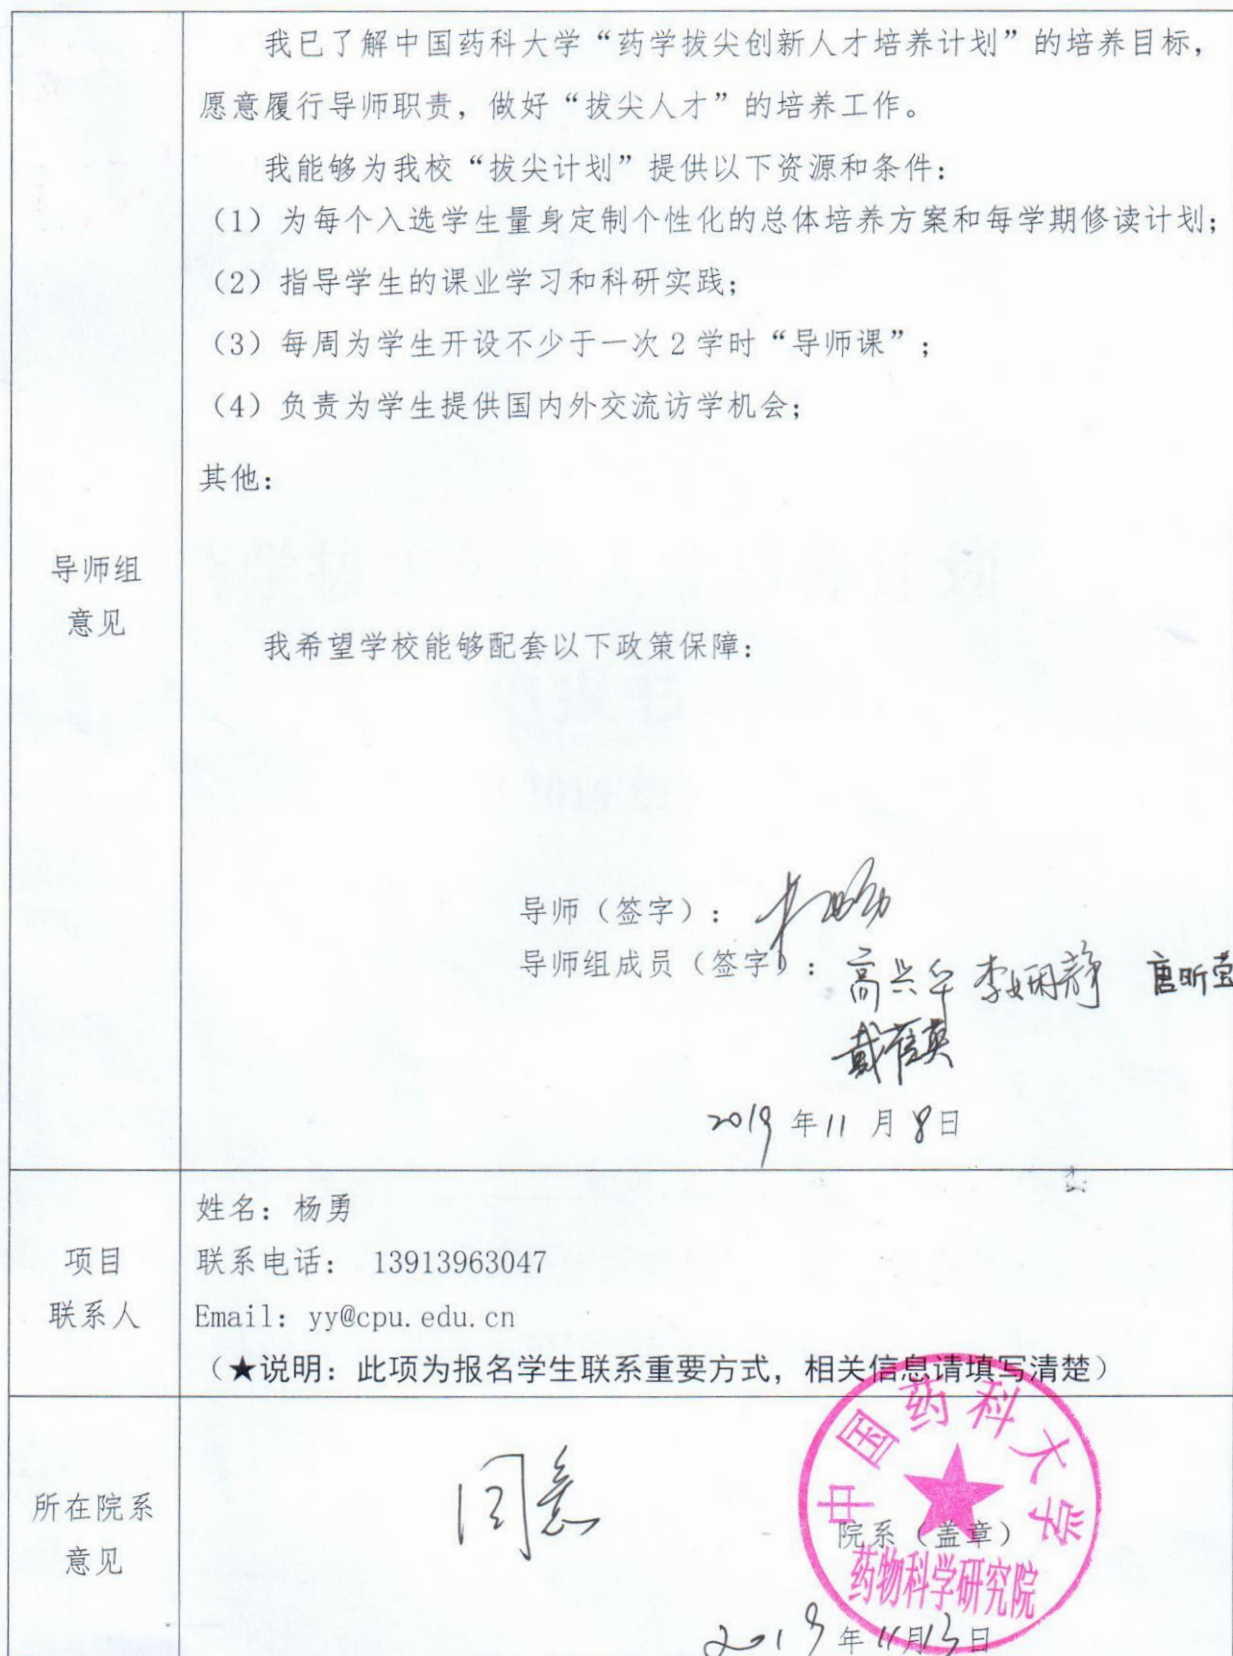 我已了解中国药科大学“药学拔尖创新人才培养计划”的培养目标，
愿意履行导师职责，做好“拔尖人才”的培养工作。
我能够为我校“拔尖计划”提供以下资源和条件：
（1）为每个入选学生量身定制个性化的总体培养方案和每学期修读计划；
（2）指导学生的课业学习和科研实践；
（3）每周为学生开设不少于一次 2 学时“导师课”；
（4）负责为学生提供国内外交流访学机会；
其他：
导师组
意见
我希望学校能够配套以下政策保障：
导师（签字）：
导师组成员（签字）：高兴华 李娴静 唐昕莹
2019 年 11 月 8 日
项目
联系人
姓名：杨勇
联系电话： 13913963047
Email：yy@cpu.edu.cn
（★说明：此项为报名学生联系重要方式，相关信息请填写清楚）
所在院系
意见
同意
中国药科大学
院系（盖章）
药物科学研究院
2019 年 11 月 13 日